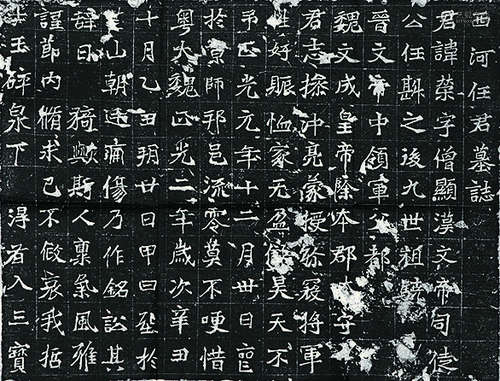 西河任君墓誌
君諱榮字僧顯漢文帝司徒
公任敖之後九世祖
晉文帝中領軍父都
魏文成皇帝除本郡守
君志操沖亮蒙授綏寇將軍
性好賑恤家无盈昊天不
予正光元年十二月卅日
於京師邦邑流零莫不哽惜
粤大魏正光二年歲次辛丑
十月乙丑朔廿日甲申於
山朝痛傷乃作銘訟其
辭曰猗歟斯人稟氣風雅
謹節內脩求己不假哀我哲
玉碎泉下得者入三寶